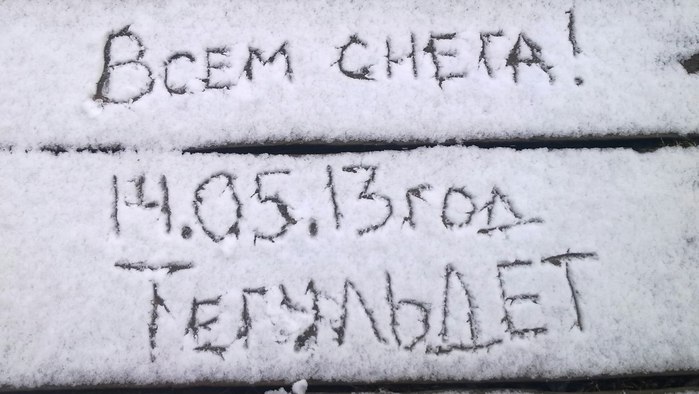 Всем снега!
14.05.13 год
Тегульдет